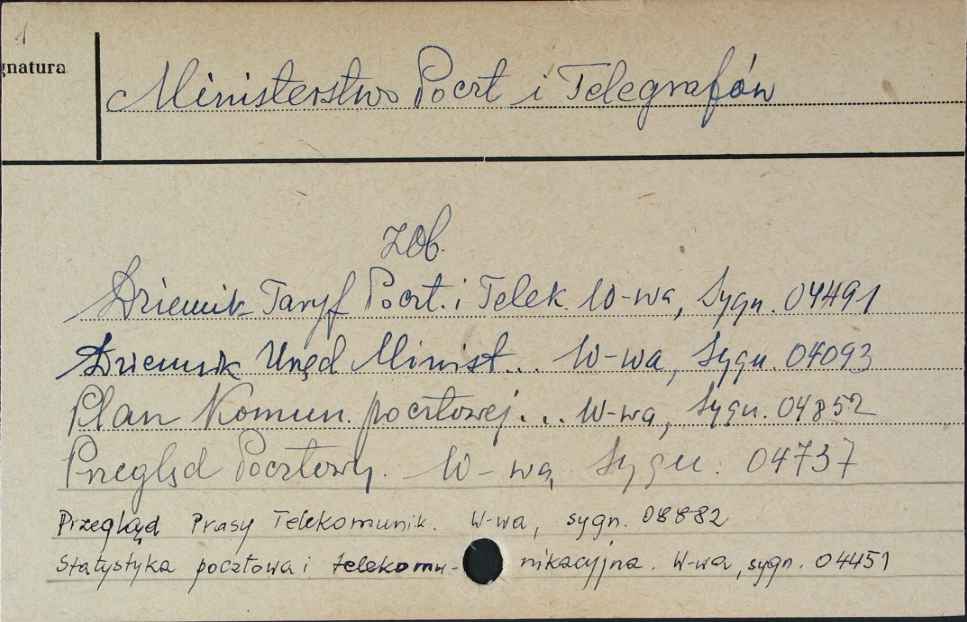 1
gnatura
Ministerstwo Poczt i Telegrafów
zob.
Dziennik Taryf Poczt. i Telek. W-wa, Sygn. 04491
Dziennik Urzęd Minist... W-wa, Sygn. 04093
Plan Komun. pocztowej... W-wa, Sygn. 04852
Przegląd Pocztowy. W-wa, Sygn. 04737
Przegląd Prasy Telekomunik. W-wa, sygn. 08882
Statystyka pocztowa i telekomu- nikacyjna. W-wa, sygn. 04451